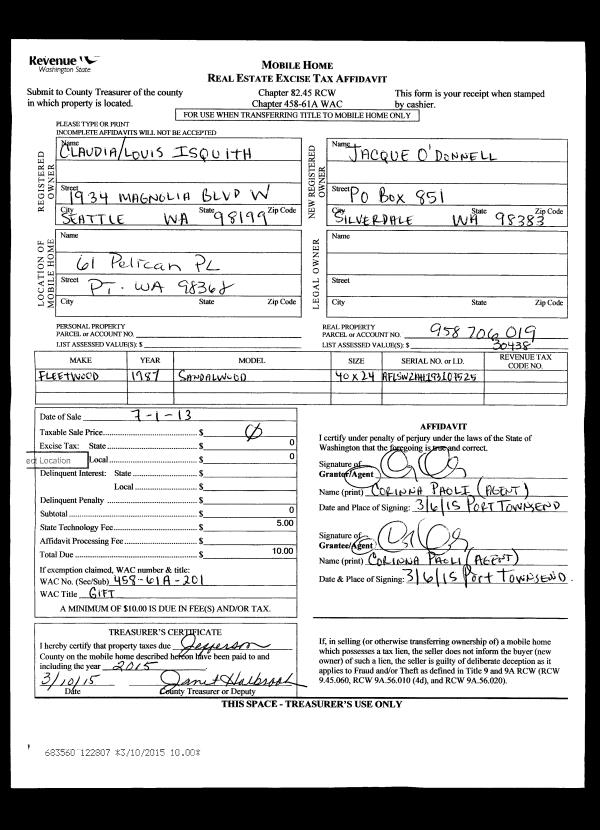 Revenue
Washington State
MOBILE HOME
REAL ESTATE EXCISE TAX AFFIDAVIT
Submit to County Treasurer of the county
in which property is located.
Chapter 82.45 RCW
Chapter 458-61A WAC
This form is your receipt when stamped
by cashier.
FOR USE WHEN TRANSFERRING TITLE TO MOBILE HOME ONLY
PLEASE TYPE OR PRINT
INCOMPLETE AFFIDAVITS WILL NOT BE ACCEPTED
REGISTERED
OWNER
Name
CLAUDIA/LOUIS ISQUITH
Street 1934 MAGNOLIA BLVD W
City State Zip Code
SEATTLE WA 98199
NEW REGISTERED
OWNER
Name
JACQUE O'DONNELL
Street PO BOX 851
City State Zip Code
SILVERDALE WA 98383
LOCATION OF
MOBILE HOME
Name
61 Pelican PL
Street PT. WA 98368
City State Zip Code
LEGAL OWNER
Name
Street
City State Zip Code
PERSONAL PROPERTY
PARCEL or ACCOUNT NO.
LIST ASSESSED VALUE(S): $
REAL PROPERTY
PARCEL or ACCOUNT NO. 958 706 019
LIST ASSESSED VALUE(S): $ 30438
MAKE YEAR MODEL SIZE SERIAL NO. or I.D. REVENUE TAX
CODE NO.
FLEETWOOD 1987 SANDALWOOD 40 x 24
Date of Sale 7-1-13
Taxable Sale Price $ 0
Excise Tax: State $ 0
ect Location
Local $ 0
Delinquent Interest: State $
Local $
Delinquent Penalty $
Subtotal $ 0
State Technology Fee $ 5.00
Affidavit Processing Fee $
Total Due $ 10.00
If exemption claimed, WAC number & title:
WAC No. (Sec/Sub) 458-61A-201
WAC Title GIFT
A MINIMUM OF $10.00 IS DUE IN FEE(S) AND/OR TAX.
AFFIDAVIT
I certify under penalty of perjury under the laws of the State of
Washington that the foregoing is true and correct.
Signature of
Grantor/Agent
Name (print) CORINNA PAOLI (AGENT)
Date and Place of Signing: 3/6/15 PORT TOWNSEND
Signature of
Grantee/Agent
Name (print) CORINNA PAOLI (AGENT)
Date & Place of Signing: 3/6/15 Port TOWNSEND.
TREASURER'S CERTIFICATE
I hereby certify that property taxes due Jefferson
County on the mobile home described hereon have been paid to and
including the year 2015
3/10/15 Janet Holbrook
Date County Treasurer or Deputy
If, in selling (or otherwise transferring ownership of) a mobile home
which possesses a tax lien, the seller does not inform the buyer (new
owner) of such a lien, the seller is guilty of deliberate deception as it
applies to Fraud and/or Theft as defined in Title 9 and 9A RCW (RCW
9.45.060, RCW 9A.56.010 (4d), and RCW 9A.56.020).
THIS SPACE - TREASURER'S USE ONLY
683560 122807 *3/10/2015 10.00*